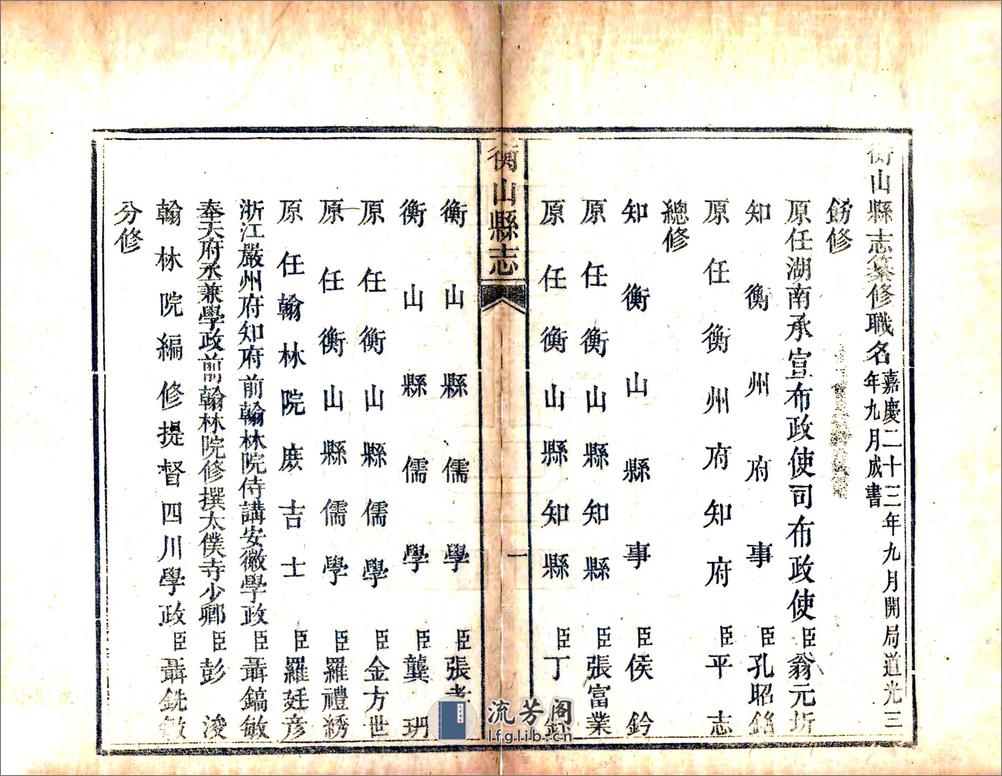 衡山縣志纂修職名嘉慶二十三年九月開局道光三年九月成書
鎊修
原任湖南承宣布政使司布政使臣翁元圻
知衡州府事臣孔昭銘
原任衡州府知府臣平志
總修
知衡山縣事臣侯鈐
原任衡山縣知縣臣張富業
原任衡山縣知縣臣丁
衡山縣志
一
衡山縣儒學臣張孝
衡山縣儒學臣龔玥
原任衡山縣儒學臣金方世
原任衡山縣儒學臣羅禮綉
原任翰林院庶吉士臣羅廷彦
浙江嚴州府知府前翰林院侍講安徽學政臣聶鎬敏
奉天府丞兼學政前翰林院修撰太僕寺少卿臣彭浚
翰林院編修提督四川學政臣聶銑敏
分修
流芳阁
lfglib.cn